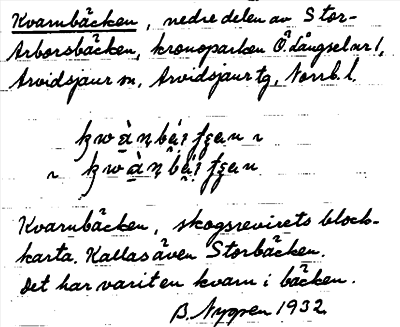 Kvarnbäcken, nedre delen av Stor-
Arborsbäcken, kronoparken Ö. Långsel nr 1,
Arvidsjaur sn, Arvidsjaur tg, Norrb. l.
Kvarnbäcken, skogsrevirets block-
karta. Kallas även Storbäcken.
Det har varit en kvarn i bäcken.
B. Nygren 1932.